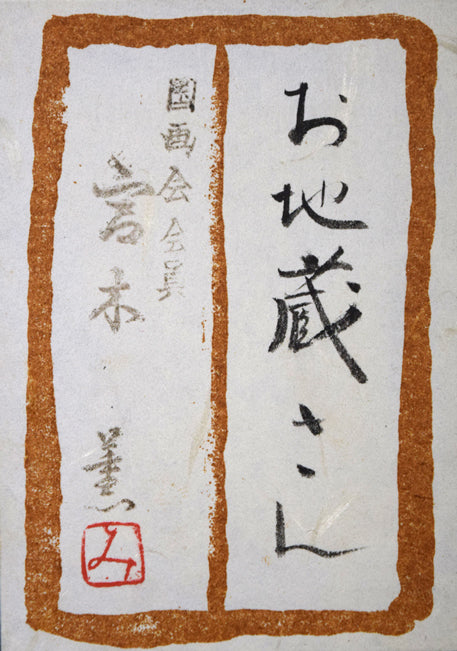 お地蔵さん
国画会会員
宮木 薫
み